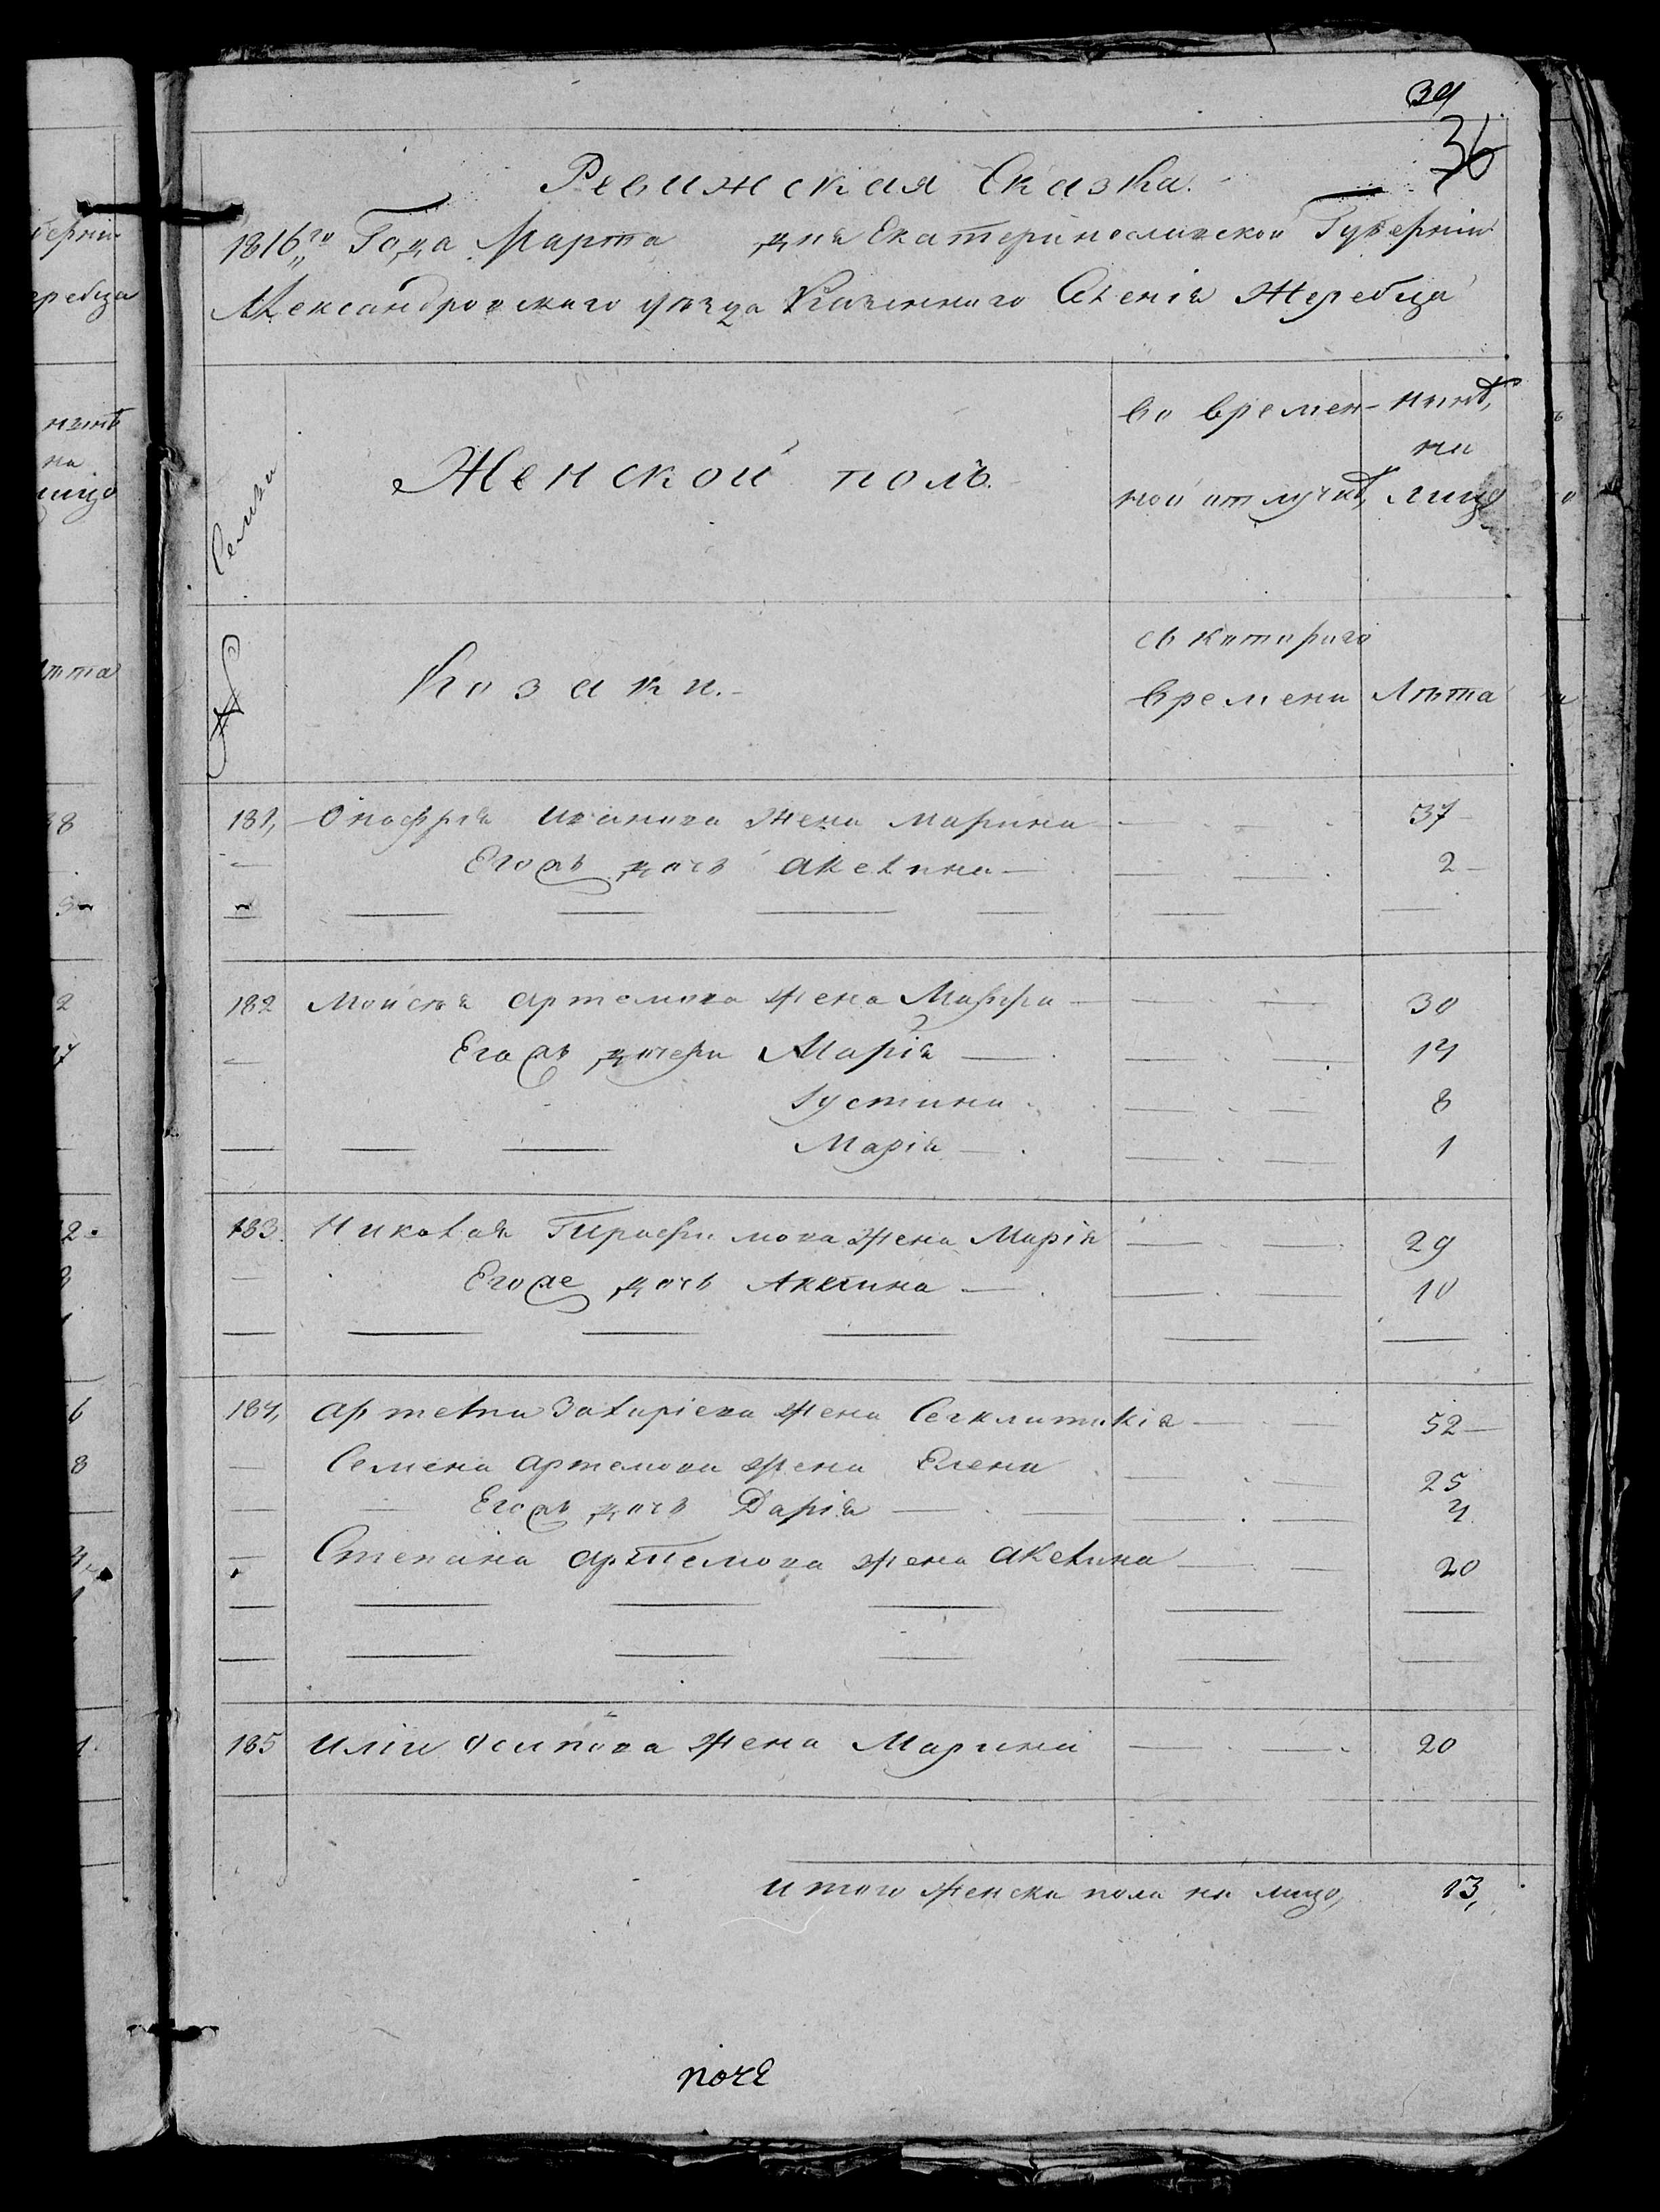 39
36
Ревижская Сказка.
1816го Года Марта дня Екатеринославской Губерніи
Александровскаго уѣзда Казеннаго Селенія Жеребца
Семьи
Женской полъ.
во времен- нынѣ,
на
ной отлучкѣ, лицо
№
Козаки.-
съ котораго
времени Лѣта
181, Онофрія Иванова жена Марина 37
Егожъ дочь Акелина 2
182 Мойсѣя Артемова жена Мавфра 30
Егожъ дочери Марія 14
Іустина 8
Марія 1
183. Николая Тирофимова жена Марія 29
Егоже дочь Акилина 10
184, Захаріева жена 52
Семена Артемова жена Елена 25
Егожъ дочь Дарія 4
Степана Артемова жена Акелина 20
185 Иліи Осипова жена Марина 20
Итого женска пола на лицо, 13,